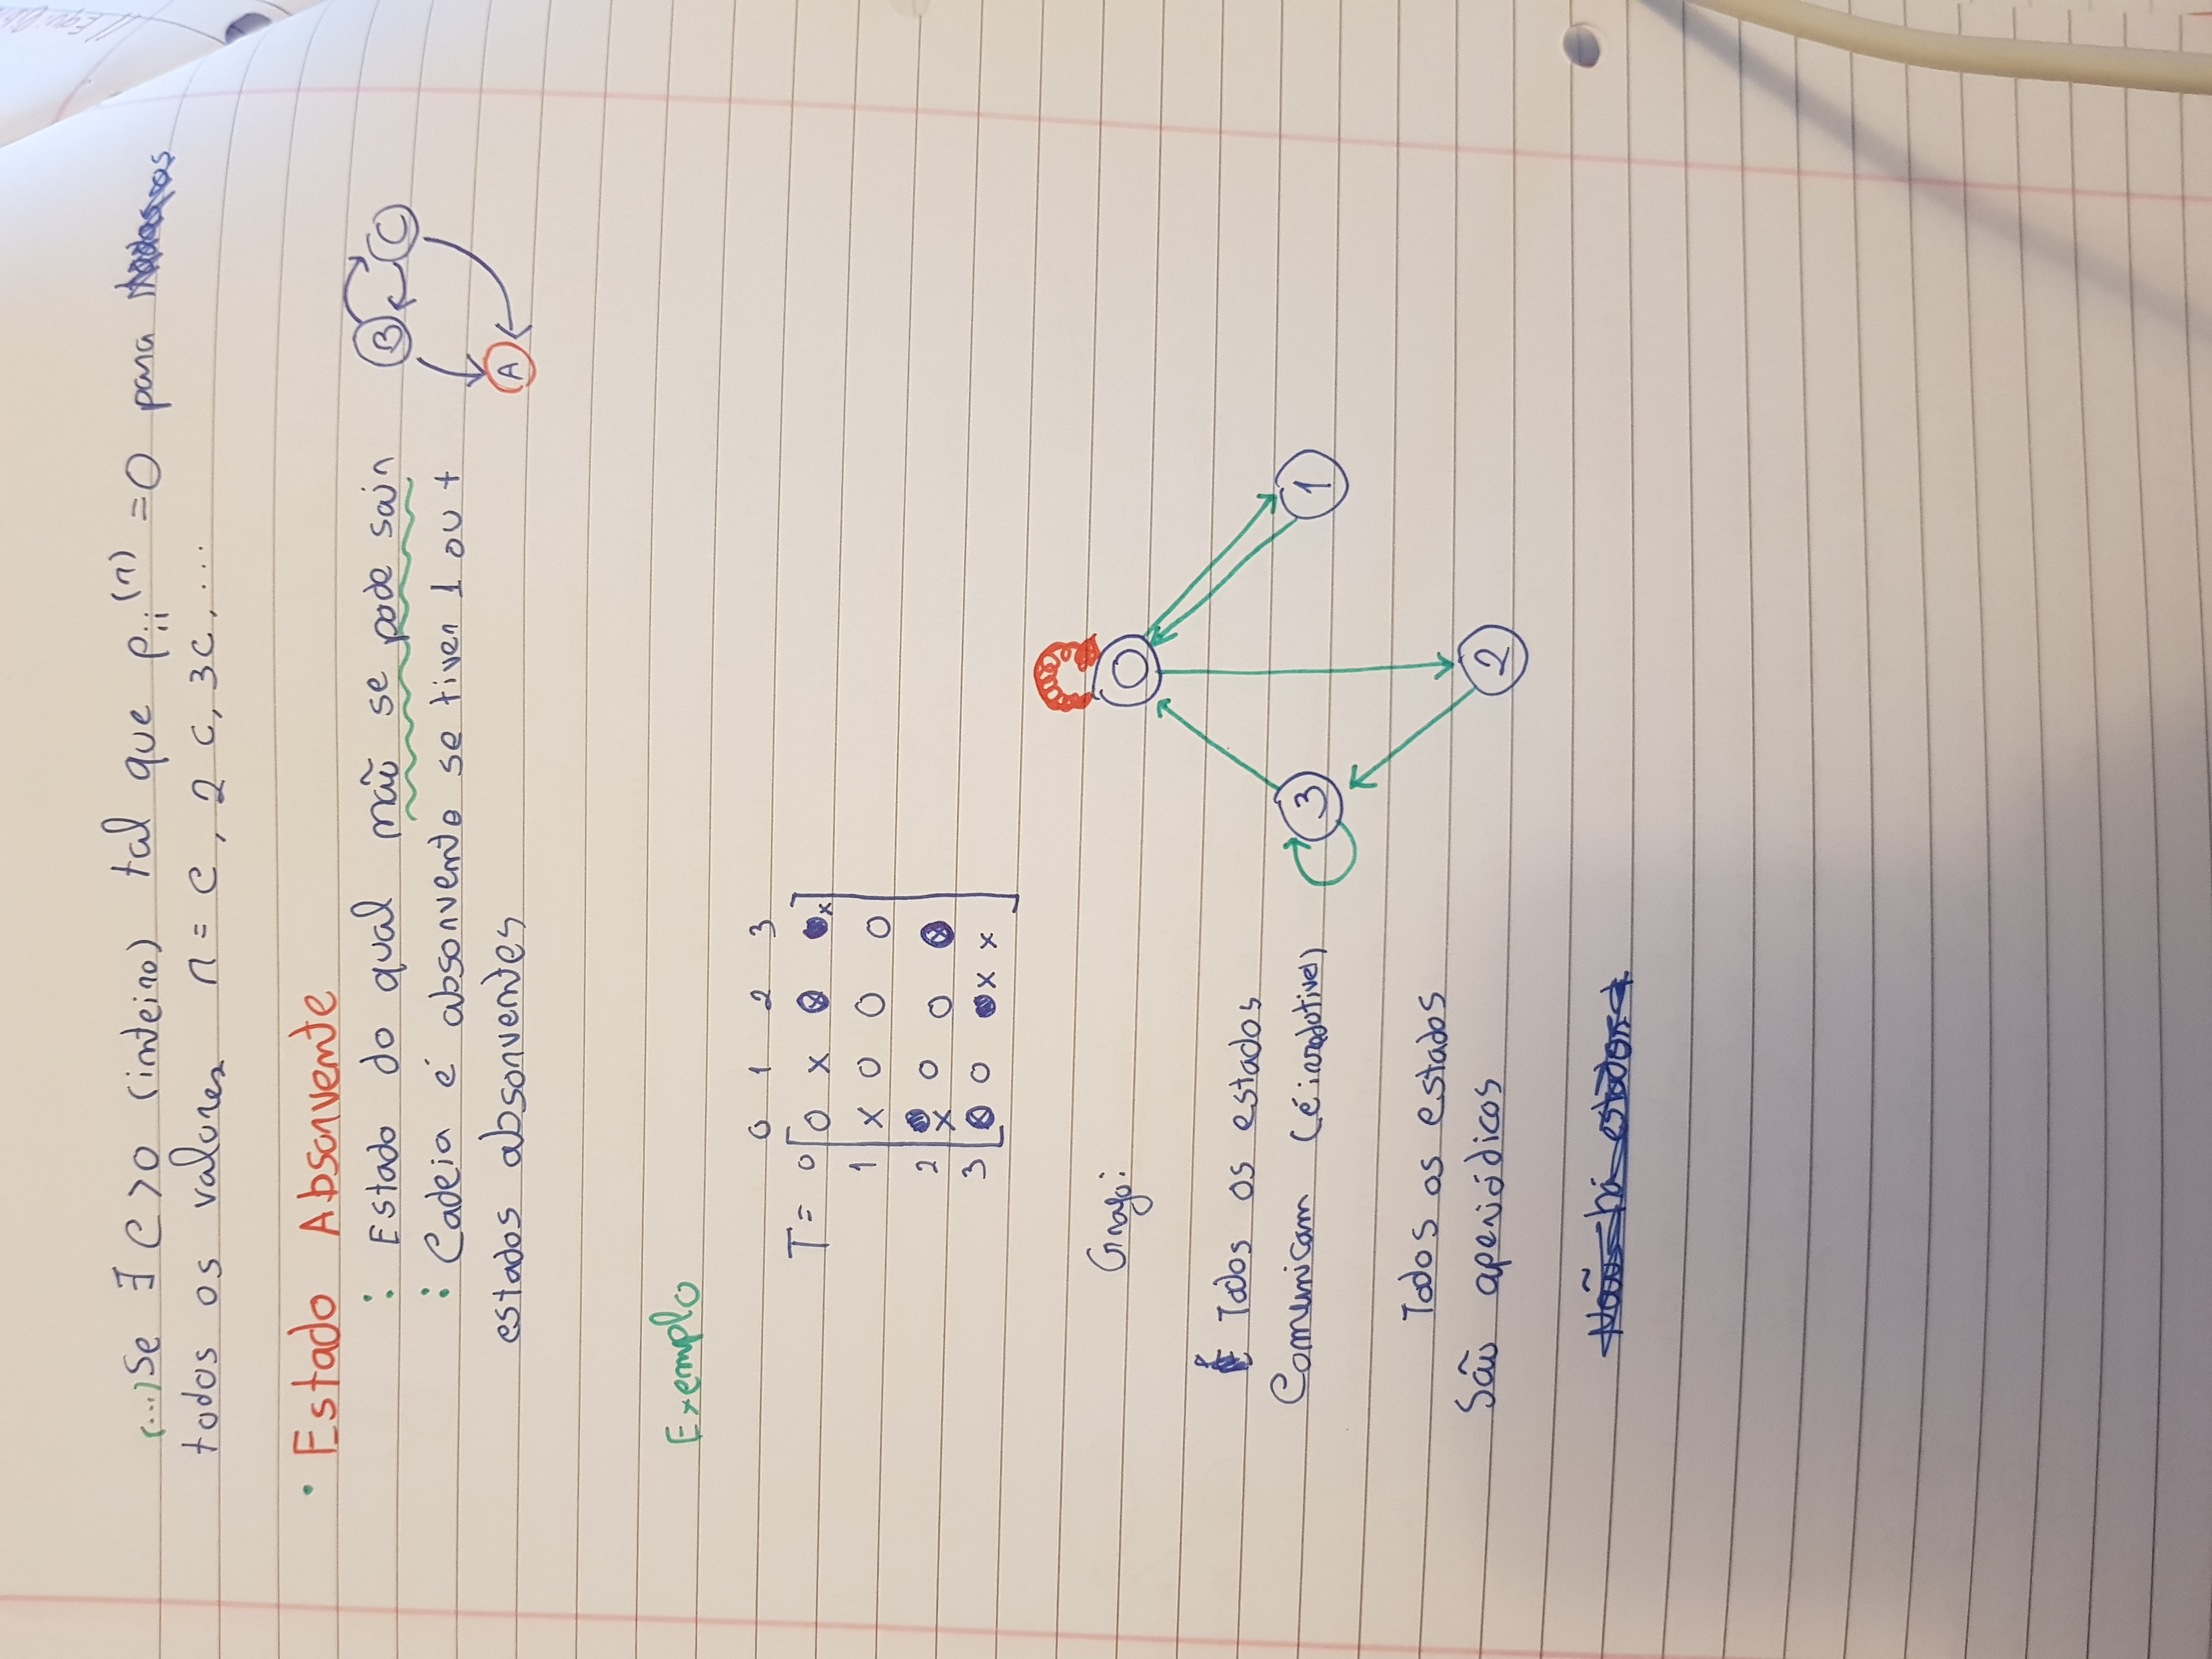 (...) Se ∃ C > 0 (inteiro) tal que pii(n) = 0 para
todos os valores n = c, 2c, 3c, ...
• Estado Absorvente
: Estado do qual não se pode sair
: Cadeia é absorvente se tiver 1 ou +
estados absorventes
B C
A
Exemplo
0 1 2 3
T = 0 [ 0 x x x ]
1 [ x 0 0 0 ]
2 [ x 0 0 x ]
3 [ x 0 x x ]
Grafo:
0
Todos os estados
Comunicam (é irredutivel)
3 1
Todos os estados
São aperiódicos
2